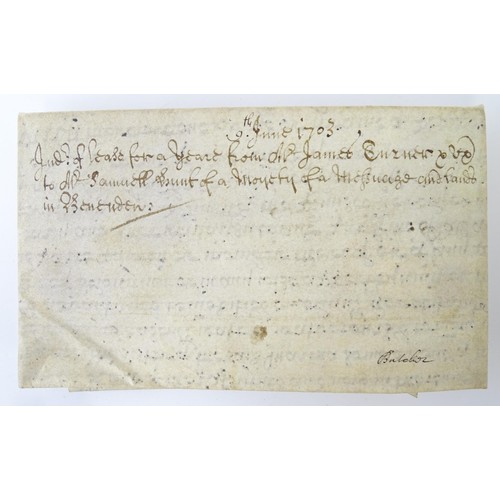 9th June 1703
Indre of Lease for a Yeare from Mr James Turner & Ux
to Mr Samuell Hunt of a Moyety of a Messuage and Lands
in Benenden: